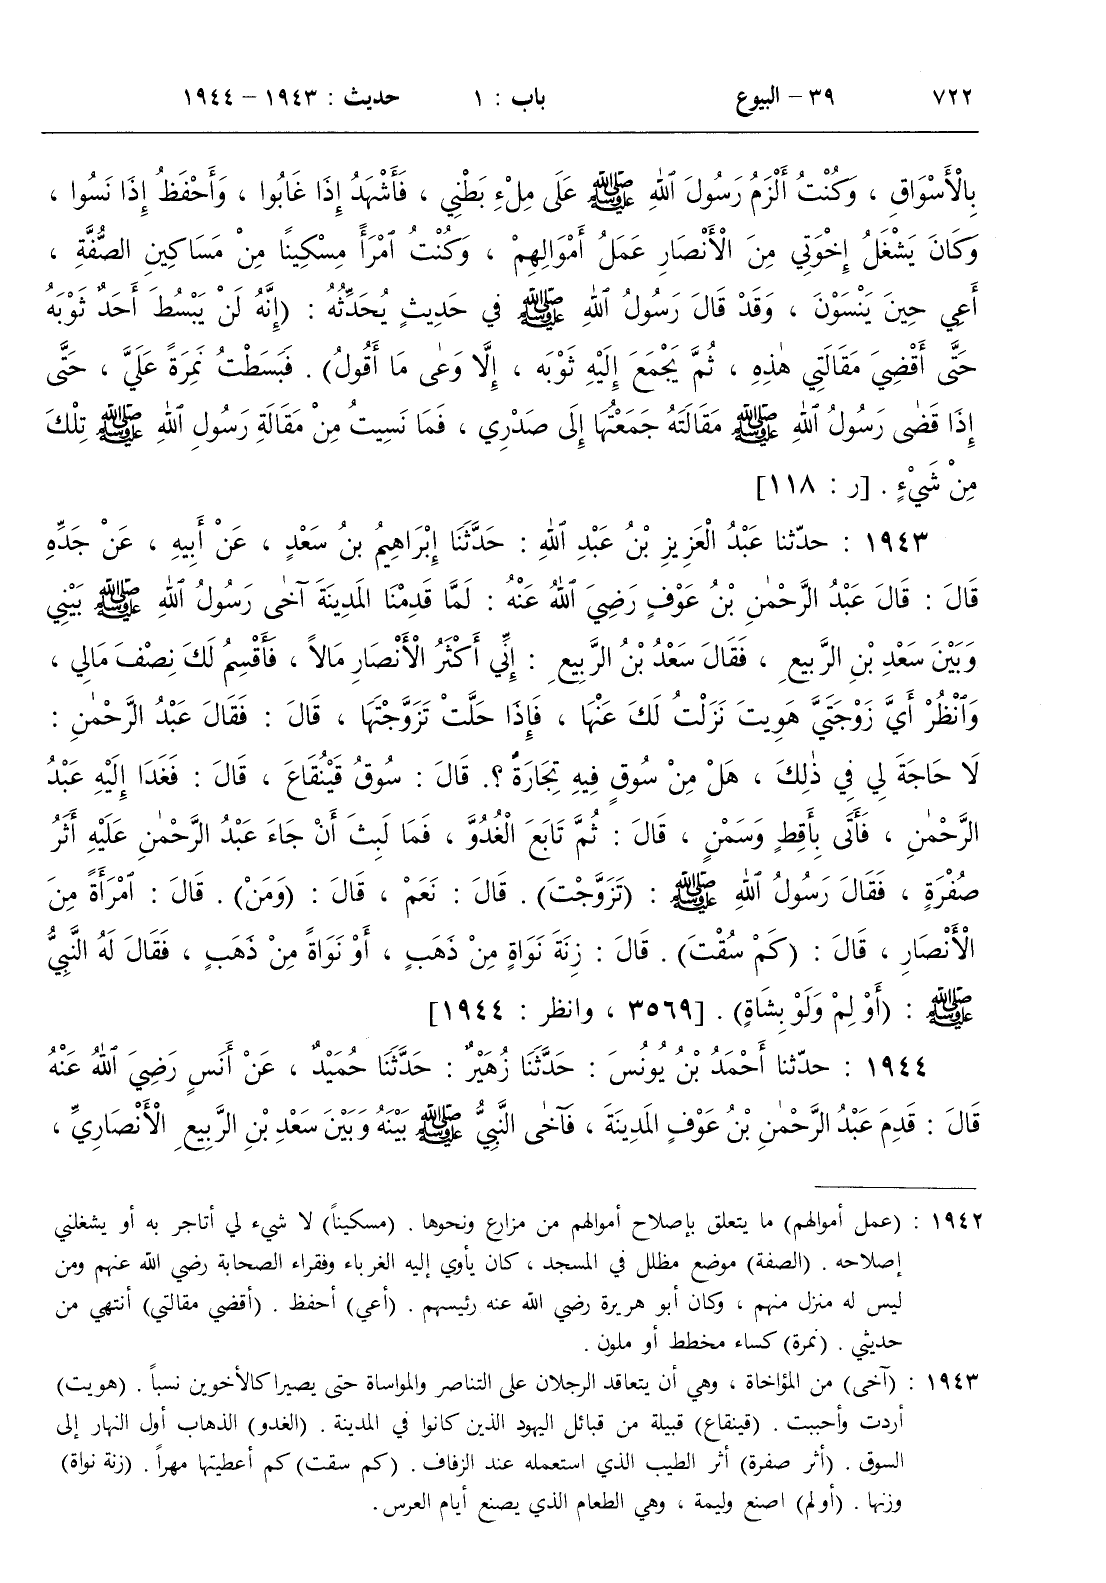 ٧٢٢ ٣٩ – البيوع باب : ١ حديث : ١٩٤٣ – ١٩٤٤
بِالْأَسْوَاقِ ، وَكُنْتُ أَلْزَمُ رَسُولَ ٱللهِ ﷺ عَلَى مِلْءِ بَطْنِي ، فَأَشْهَدُ إِذَا غَابُوا ، وَأَحْفَظُ إِذَا نَسُوا ،
وَكَانَ يَشْغَلُ إِخْوَتِي مِنَ الْأَنْصَارِ عَمَلُ أَمْوَالِهِمْ ، وَكُنْتُ ٱمْرَأً مِسْكِينًا مِنْ مَسَاكِينِ الصُّفَّةِ ،
أَعِي حِينَ يَنْسَوْنَ ، وَقَدْ قَالَ رَسُولُ ٱللهِ ﷺ فِي حَدِيثٍ يُحَدِّثُهُ : (إِنَّهُ لَنْ يَبْسُطَ أَحَدٌ ثَوْبَهُ
حَتَّى أَقْضِيَ مَقَالَتِي هٰذِهِ ، ثُمَّ يَجْمَعَ إِلَيْهِ ثَوْبَه ، إِلَّا وَعٰى مَا أَقُولُ) . فَبَسَطْتُ نَمِرَةً عَلَيَّ ، حَتَّى
إِذَا قَضٰى رَسُولُ ٱللهِ ﷺ مَقَالَتَهُ جَمَعْتُهَا إِلَى صَدْرِي ، فَمَا نَسِيتُ مِنْ مَقَالَةِ رَسُولِ ٱللهِ ﷺ تِلْكَ
مِنْ شَيْءٍ . [ر : ١١٨]
١٩٤٣ : حدّثنا عَبْدُ الْعَزِيزِ بْنُ عَبْدِ ٱللهِ : حَدَّثَنَا إِبْرَاهِيمُ بنُ سَعْدٍ ، عَنْ أَبِيهِ ، عَنْ جَدِّهِ
قَالَ : قَالَ عَبْدُ الرَّحْمٰنِ بْنُ عَوْفٍ رَضِيَ ٱللهُ عَنْهُ : لَمَّا قَدِمْنَا المَدِينَةَ آخٰى رَسُولُ ٱللهِ ﷺ بَيْنِي
وَبَيْنَ سَعْدِ بْنِ الرَّبِيعِ ، فَقَالَ سَعْدُ بْنُ الرَّبِيعِ : إِنِّي أَكْثَرُ الْأَنْصَارِ مَالاً ، فَأَقْسِمُ لَكَ نِصْفَ مَالِي ،
وَٱنْظُرْ أَيَّ زَوْجَتَيَّ هَوِيتَ نَزَلْتُ لَكَ عَنْهَا ، فَإِذَا حَلَّتْ تَزَوَّجْتَهَا ، قَالَ : فَقَالَ عَبْدُ الرَّحْمٰنِ :
لَا حَاجَةَ لِي فِي ذٰلِكَ ، هَلْ مِنْ سُوقٍ فِيهِ تِجَارَةٌ ؟. قَالَ : سُوقُ قَيْنُقَاعَ ، قَالَ : فَغَدَا إِلَيْهِ عَبْدُ
الرَّحْمٰنِ ، فَأَتَى بِأَقِطٍ وَسَمْنٍ ، قَالَ : ثُمَّ تَابَعَ الْغُدُوَّ ، فَمَا لَبِثَ أَنْ جَاءَ عَبْدُ الرَّحْمٰنِ عَلَيْهِ أَثَرُ
صُفْرَةٍ ، فَقَالَ رَسُولُ ٱللهِ ﷺ : (تَزَوَّجْتَ) . قَالَ : نَعَمْ ، قَالَ : (وَمَنْ) . قَالَ : ٱمْرَأَةً مِنَ
الْأَنْصَارِ ، قَالَ : (كَمْ سُقْتَ) . قَالَ : زِنَةَ نَوَاةٍ مِنْ ذَهَبٍ ، أَوْ نَوَاةً مِنْ ذَهَبٍ ، فَقَالَ لَهُ النَّبِيُّ
ﷺ : (أَوْلِمْ وَلَوْ بِشَاةٍ) . [٣٥٦٩ ، وانظر : ١٩٤٤]
١٩٤٤ : حدّثنا أَحْمَدُ بْنُ يُونُسَ : حَدَّثَنَا زُهَيْرٌ : حَدَّثَنَا حُمَيْدٌ ، عَنْ أَنَسٍ رَضِيَ ٱللهُ عَنْهُ
قَالَ : قَدِمَ عَبْدُ الرَّحْمٰنِ بْنُ عَوْفٍ المَدِينَةَ ، فَآخٰى النَّبِيُّ ﷺ بَيْنَهُ وَبَيْنَ سَعْدِ بْنِ الرَّبِيعِ الْأَنْصَارِيِّ ،
١٩٤٢ : (عمل أموالهم) ما يتعلق بإصلاح أموالهم من مزارع ونحوها . (مسكيناً) لا شيء لي أتاجر به أو يشغلني
إصلاحه . (الصفة) موضع مظلل في المسجد ، كان يأوي إليه الغرباء وفقراء الصحابة رضي الله عنهم ومن
ليس له منزل منهم ، وكان أبو هريرة رضي الله عنه رئيسهم . (أعي) أحفظ . (أقضي مقالتي) أنتهي من
حديثي . (نمرة) كساء مخطط أو ملون .
١٩٤٣ : (آخى) من المؤاخاة ، وهي أن يتعاقد الرجلان على التناصر والمواساة حتى يصيرا كالأخوين نسباً . (هويت)
أردت وأحببت . (قينقاع) قبيلة من قبائل اليهود الذين كانوا في المدينة . (الغدو) الذهاب أول النهار إلى
السوق . (أثر صفرة) أثر الطيب الذي استعمله عند الزفاف . (كم سقت) كم أعطيتها مهراً . (زنة نواة)
وزنها . (أولم) اصنع وليمة ، وهي الطعام الذي يصنع أيام العرس .